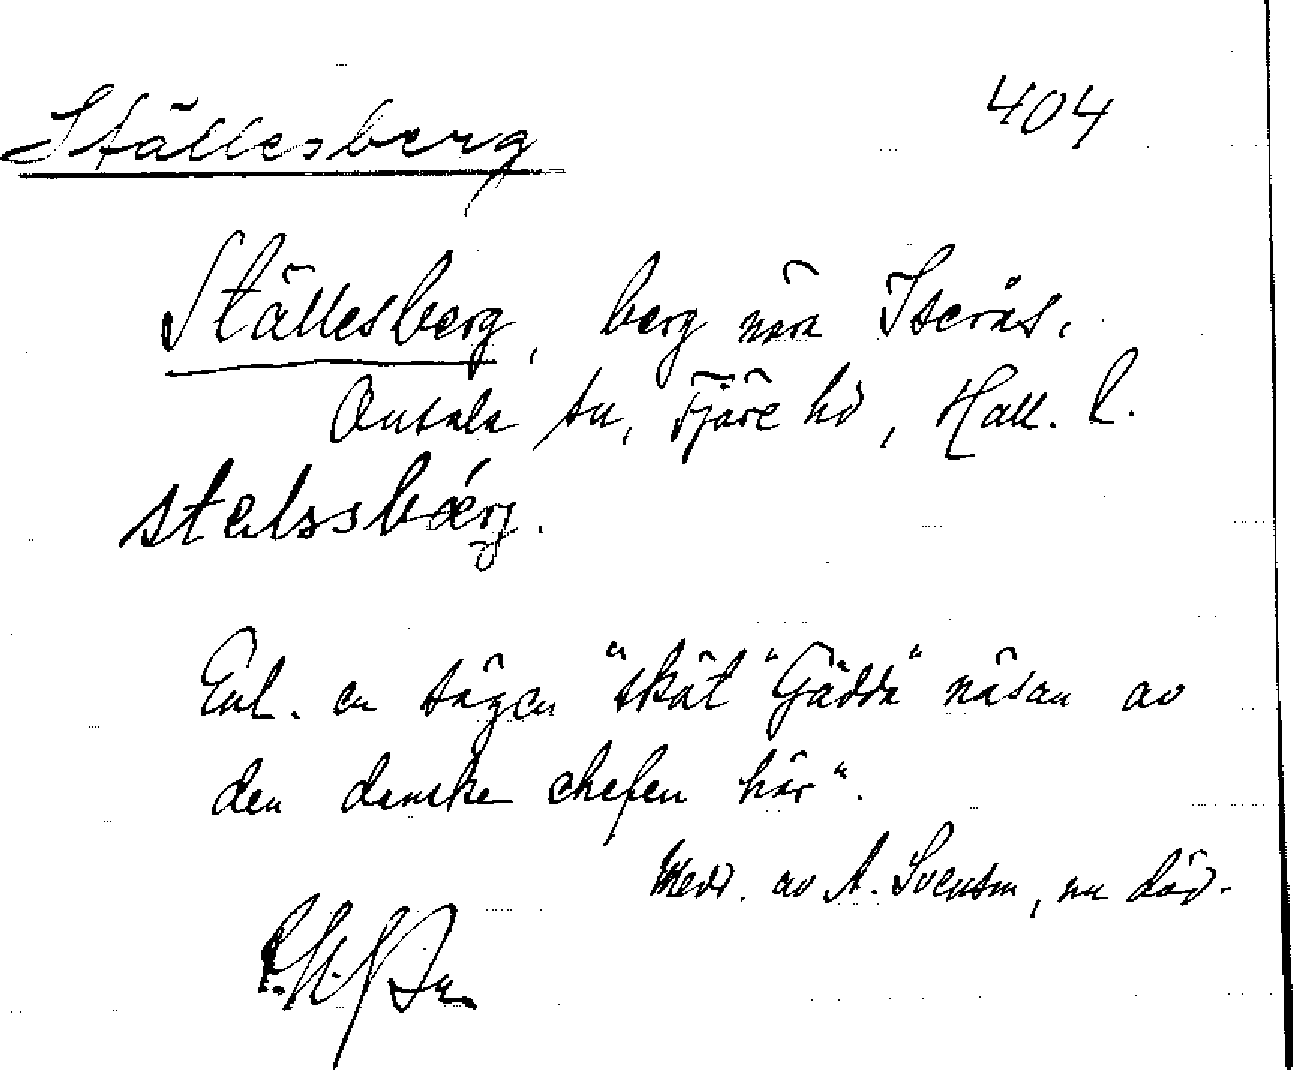 Ställesberg 404
Ställesberg, berg nära Iserås.
Onsala sn, Fjäre hd, Hall. l.
stalssbærg.
Enl. en sägen "sköt "Gädda" näsan av
den danske chefen här".
Medd. av A. Svenson, nu död.